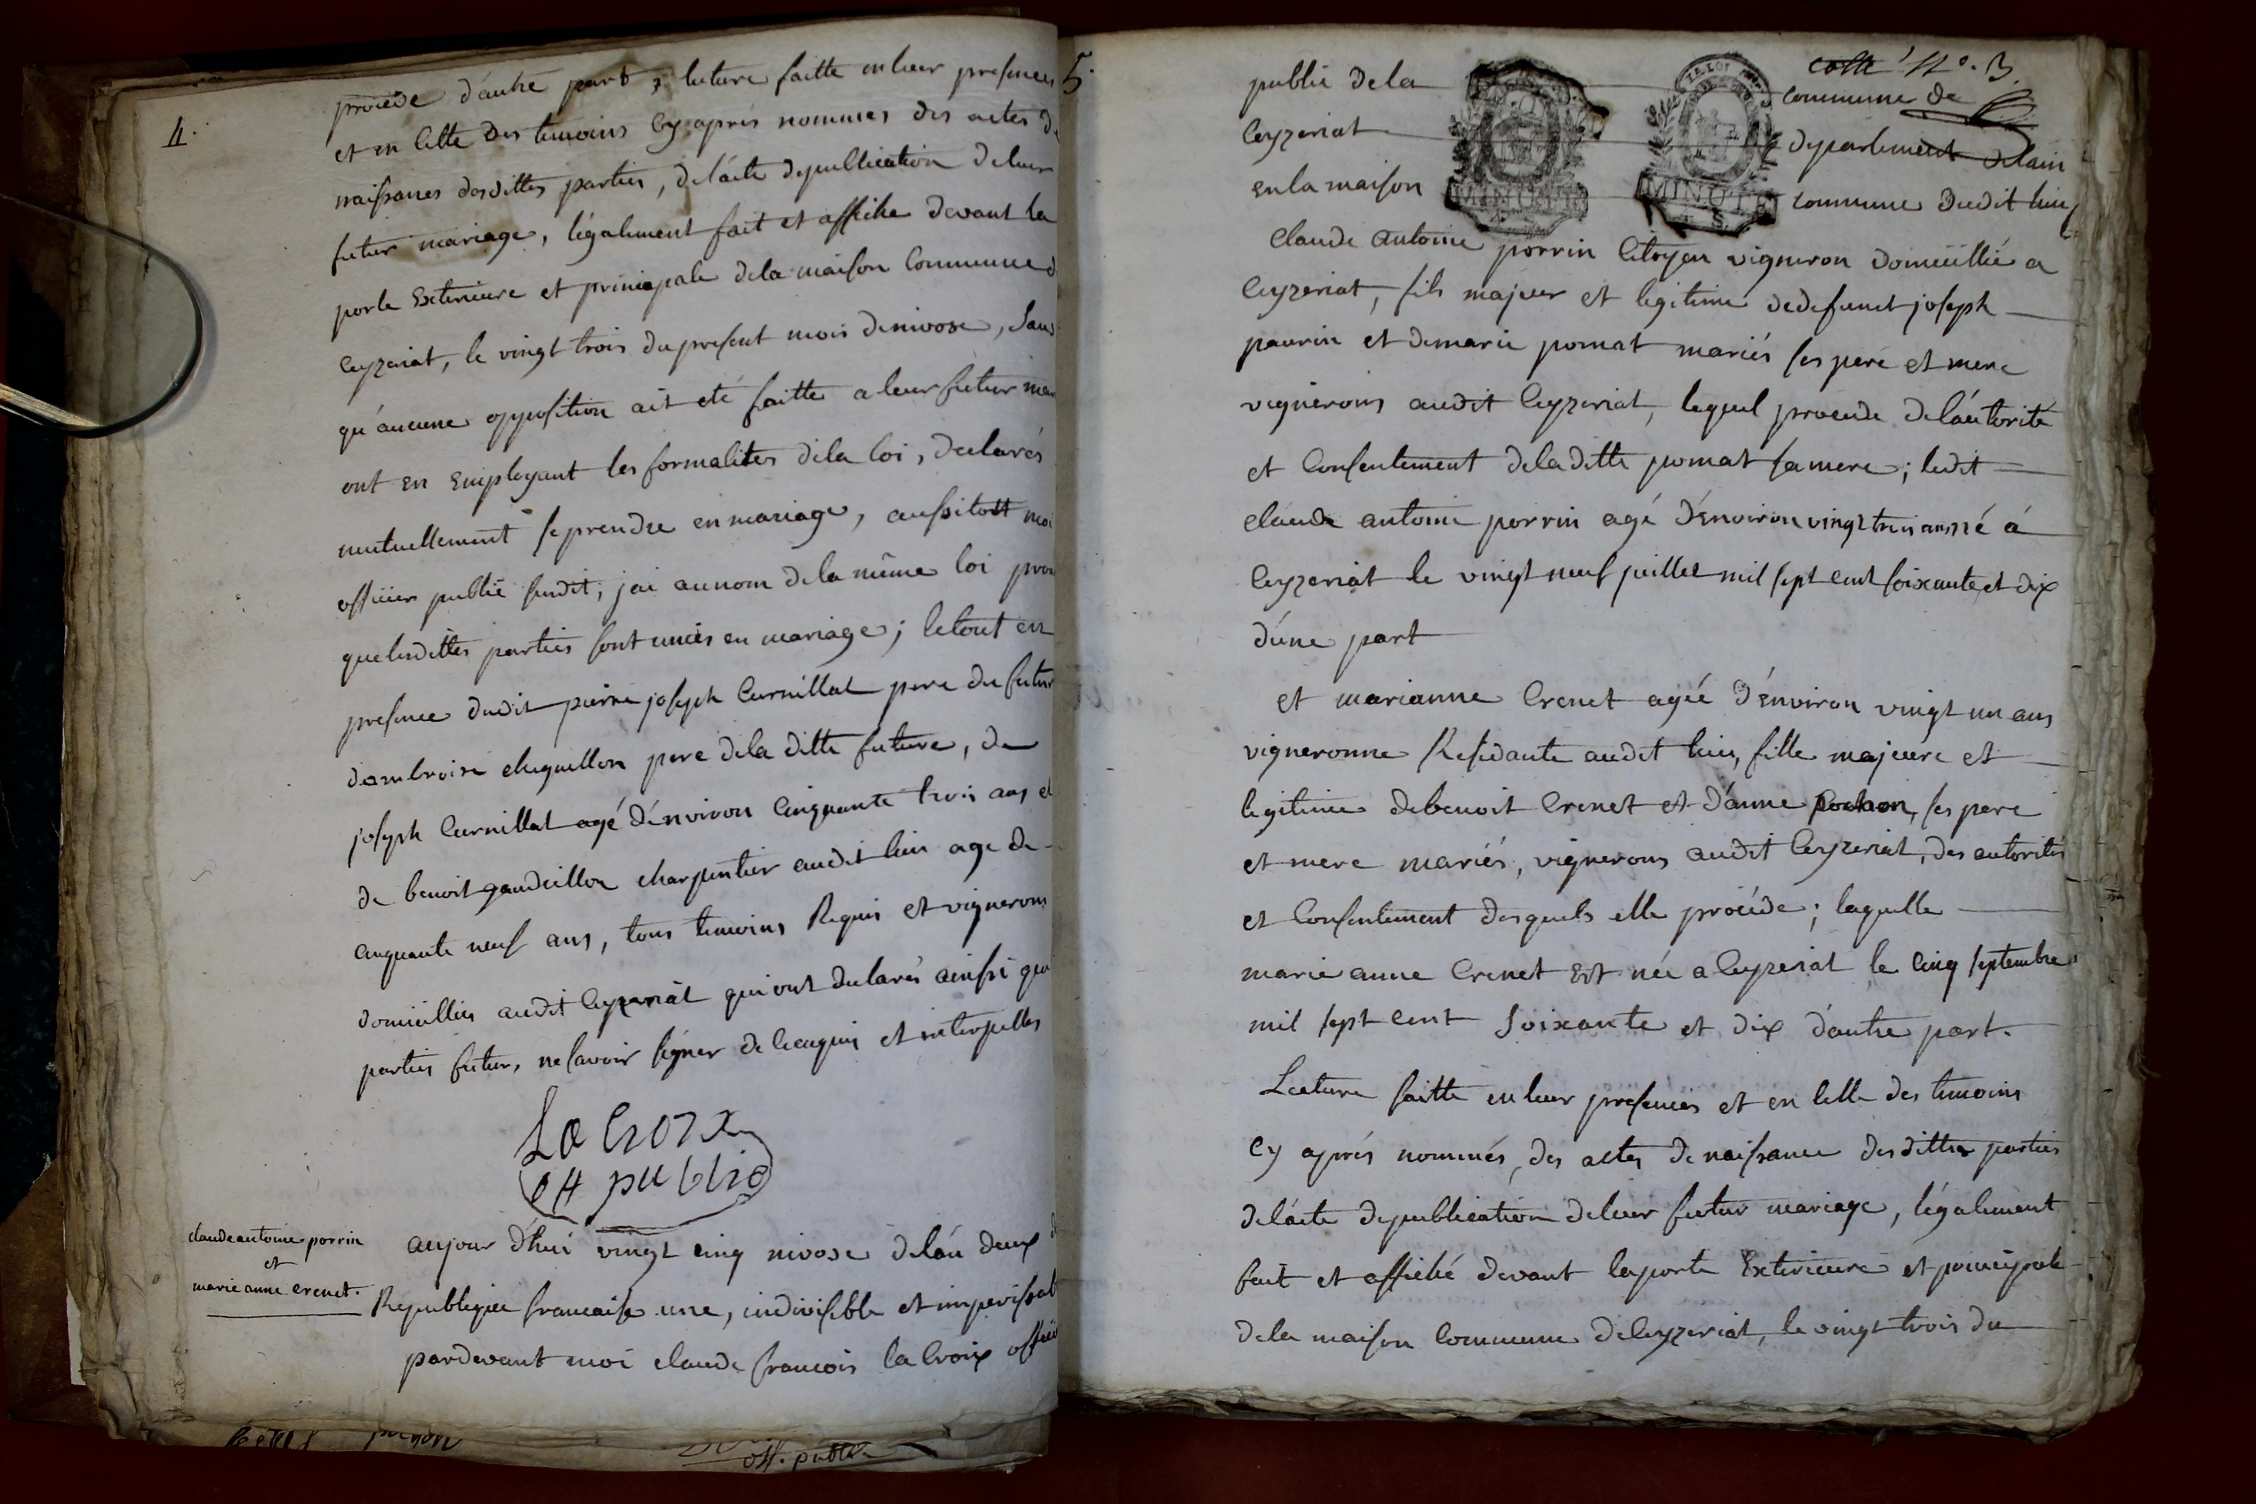 4.
procede d'autre part, lecture faitte en leur presences
et en Celle Des temoins Cy après nommes Des actes de
naissances desdittes parties, de l'acte de publication de leur
futur mariage, légalement fait et affiche devant la
porte Exterieure et principale dela maison Commune d
Ceyzeriat, le vingt trois du present mois de nivose, sans
qu'aucune opposition ait eté faitte a leur futur mar
ont en Employant les formalites dela loi, declarés
mutuellement se prendre en mariage, aussitott moi
officier public susdit, jai aunom dela même loi pron
que lesdittes parties sont unies en mariage; le tout en
presence dudit pierre joseph Curnillat pere du futur
d'ambroise chiquellon pere dela ditte future, de
joseph Curnillat agé d'énviron Cinquante trois ans et
de benoit gaudillon charpentier audit lieu age de
cinquante neuf ans, tous temoins Requis et vignerons
domicilliés audit Ceyzeriat qui ont declarés ainssi que
parties futur, ne savoir signer de ce enquis et interpelles
La Croix
off public
claude antoine porrin
et
marie anne crenet.
aujour d'hui vingt cinq nivose delán deux d
Republique francaise une, indivisible et imperissabl
pardevant moi claude francois la Croix officie
off. public
5.
cotté N°. 3
public dela commune de
Ceyzeriat departement delain
en la maison commune dudit lieu
MINUTE MINUTE
Claude antoine porrin Citoyen vigneron domicillié a
Ceyzeriat, fils majeur et legitime de defunct joseph
paurin et de marie pomat mariés ses pere et mere
vignerons audit Ceyzeriat, lequel procede de l'autorité
et Consentement dela ditte pomat sa mere; ledit
claude antoine porrin agé d'énviron vingt trois ans né á
Ceyzeriat le vingt neuf juillet mil sept cent soixante et dix
d'úne part
et marianne Crenet agée d'énviron vingt un ans
vigneronne Residante audit lieu, fille majeure et
legitime de benoit Crenet et d'anne pochon, ses pere
et mere mariés, vignerons audit Ceyzeriat, des autorités
et Consentement desquels elle procéde; laquelle
marie anne Crenet Est née a Ceyzeriat le Cinq septembre
mil sept cent soixante et dix d'autre part.
Lecture faitte en leur presences et en Celle des temoins
Cy après nommés, des actes de naissance desdittes parties
de l'acte de publication de leur futur mariage, légalement
fait et affiché devant la porte Exterieure et principale
dela maison Commune de Ceyzeriat, le vingt trois du